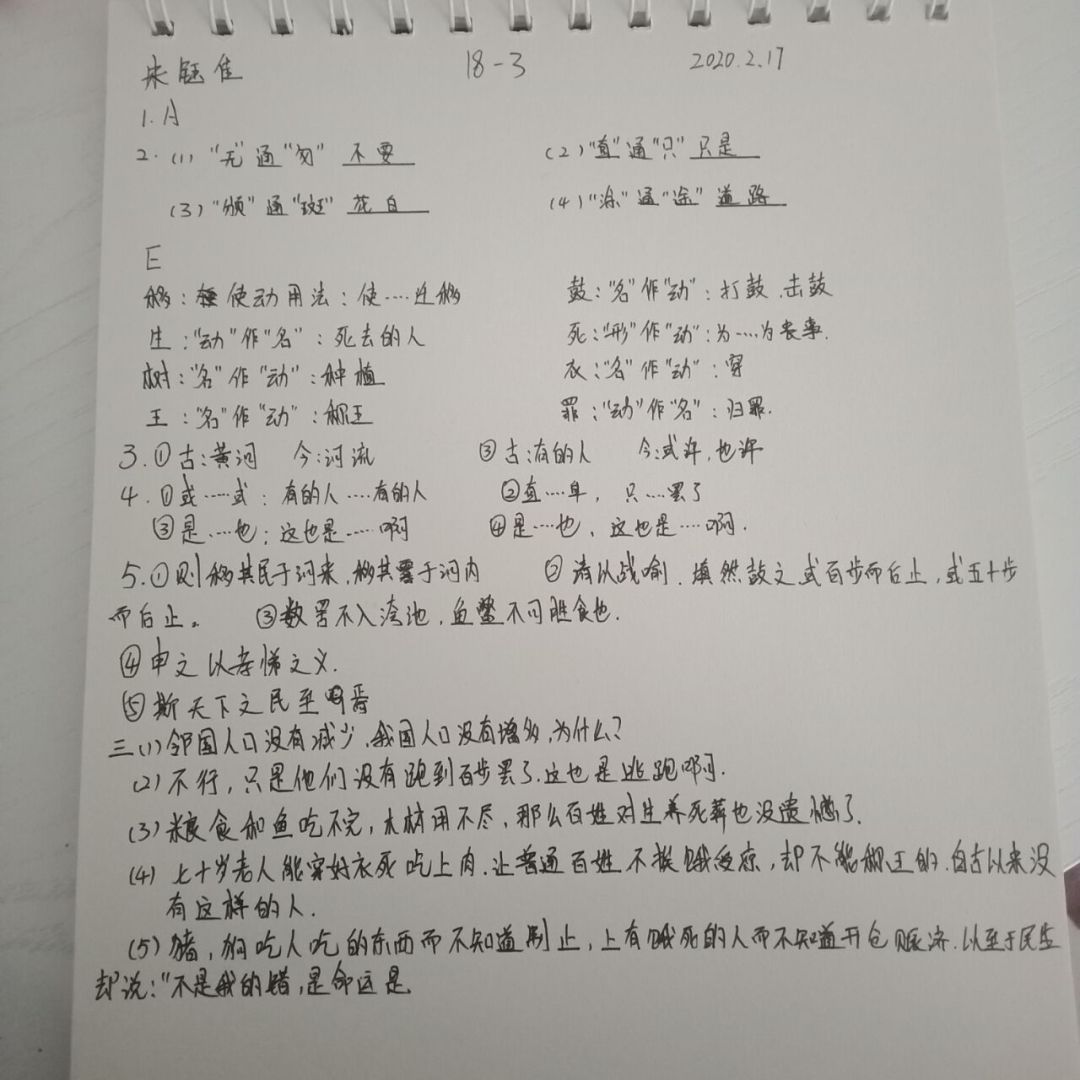 朱钰佳 18-3 2020.2.17
1. A
2. (1) "无"通"勿" 不要 (2) "直"通"只" 只是
(3) "颁"通"斑" 花白 (4) "涂"通"途" 道路
E
移: 使动用法: 使……迁移 鼓: "名"作"动": 打鼓.击鼓
生: "动"作"名": 死去的人 死: "形"作"动": 为……为丧事.
树: "名"作"动": 种植 衣: "名"作"动": 穿
王: "名"作"动": 称王 罪: "动"作"名": 归罪.
3. ①古: 黄河 今: 河流 ③古: 有的人 今: 或许, 也许
4. ①或……或: 有的人……有的人 ②直……耳, 只……罢了
③是……也: 这也是……啊 ④是……也, 这也是……啊.
5. ①则移其民于河来, 移其粟于河内 ②请以战喻. 填然鼓之 或百步而后止, 或五十步
而后止。 ③数罟不入洿池, 鱼鳖不可胜食也.
④申之以孝悌之义.
⑤斯天下之民至焉
三(1)邻国人口没有减少, 我国人口没有增多, 为什么?
(2) 不行, 只是他们没有跑到百步罢了. 这也是逃跑啊.
(3) 粮食和鱼吃不完, 木材用不尽, 那么百姓对生养死葬也没遗憾了.
(4) 七十岁老人能穿好衣死吃上肉. 让普通百姓不挨饿受凉, 却不能称王的. 自古以来没
有这样的人.
(5) 猪, 狗吃人吃的东西而不知道制止, 上有饿死的人而不知道开仓赈济. 以至于民生
却说: "不是我的错, 是命这是